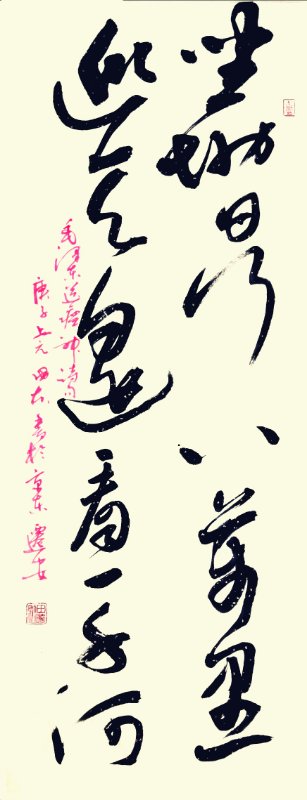 坐地日行八万里
巡天遥看一千河
毛泽东送瘟神诗句
庚子上元田
书于京东迁安